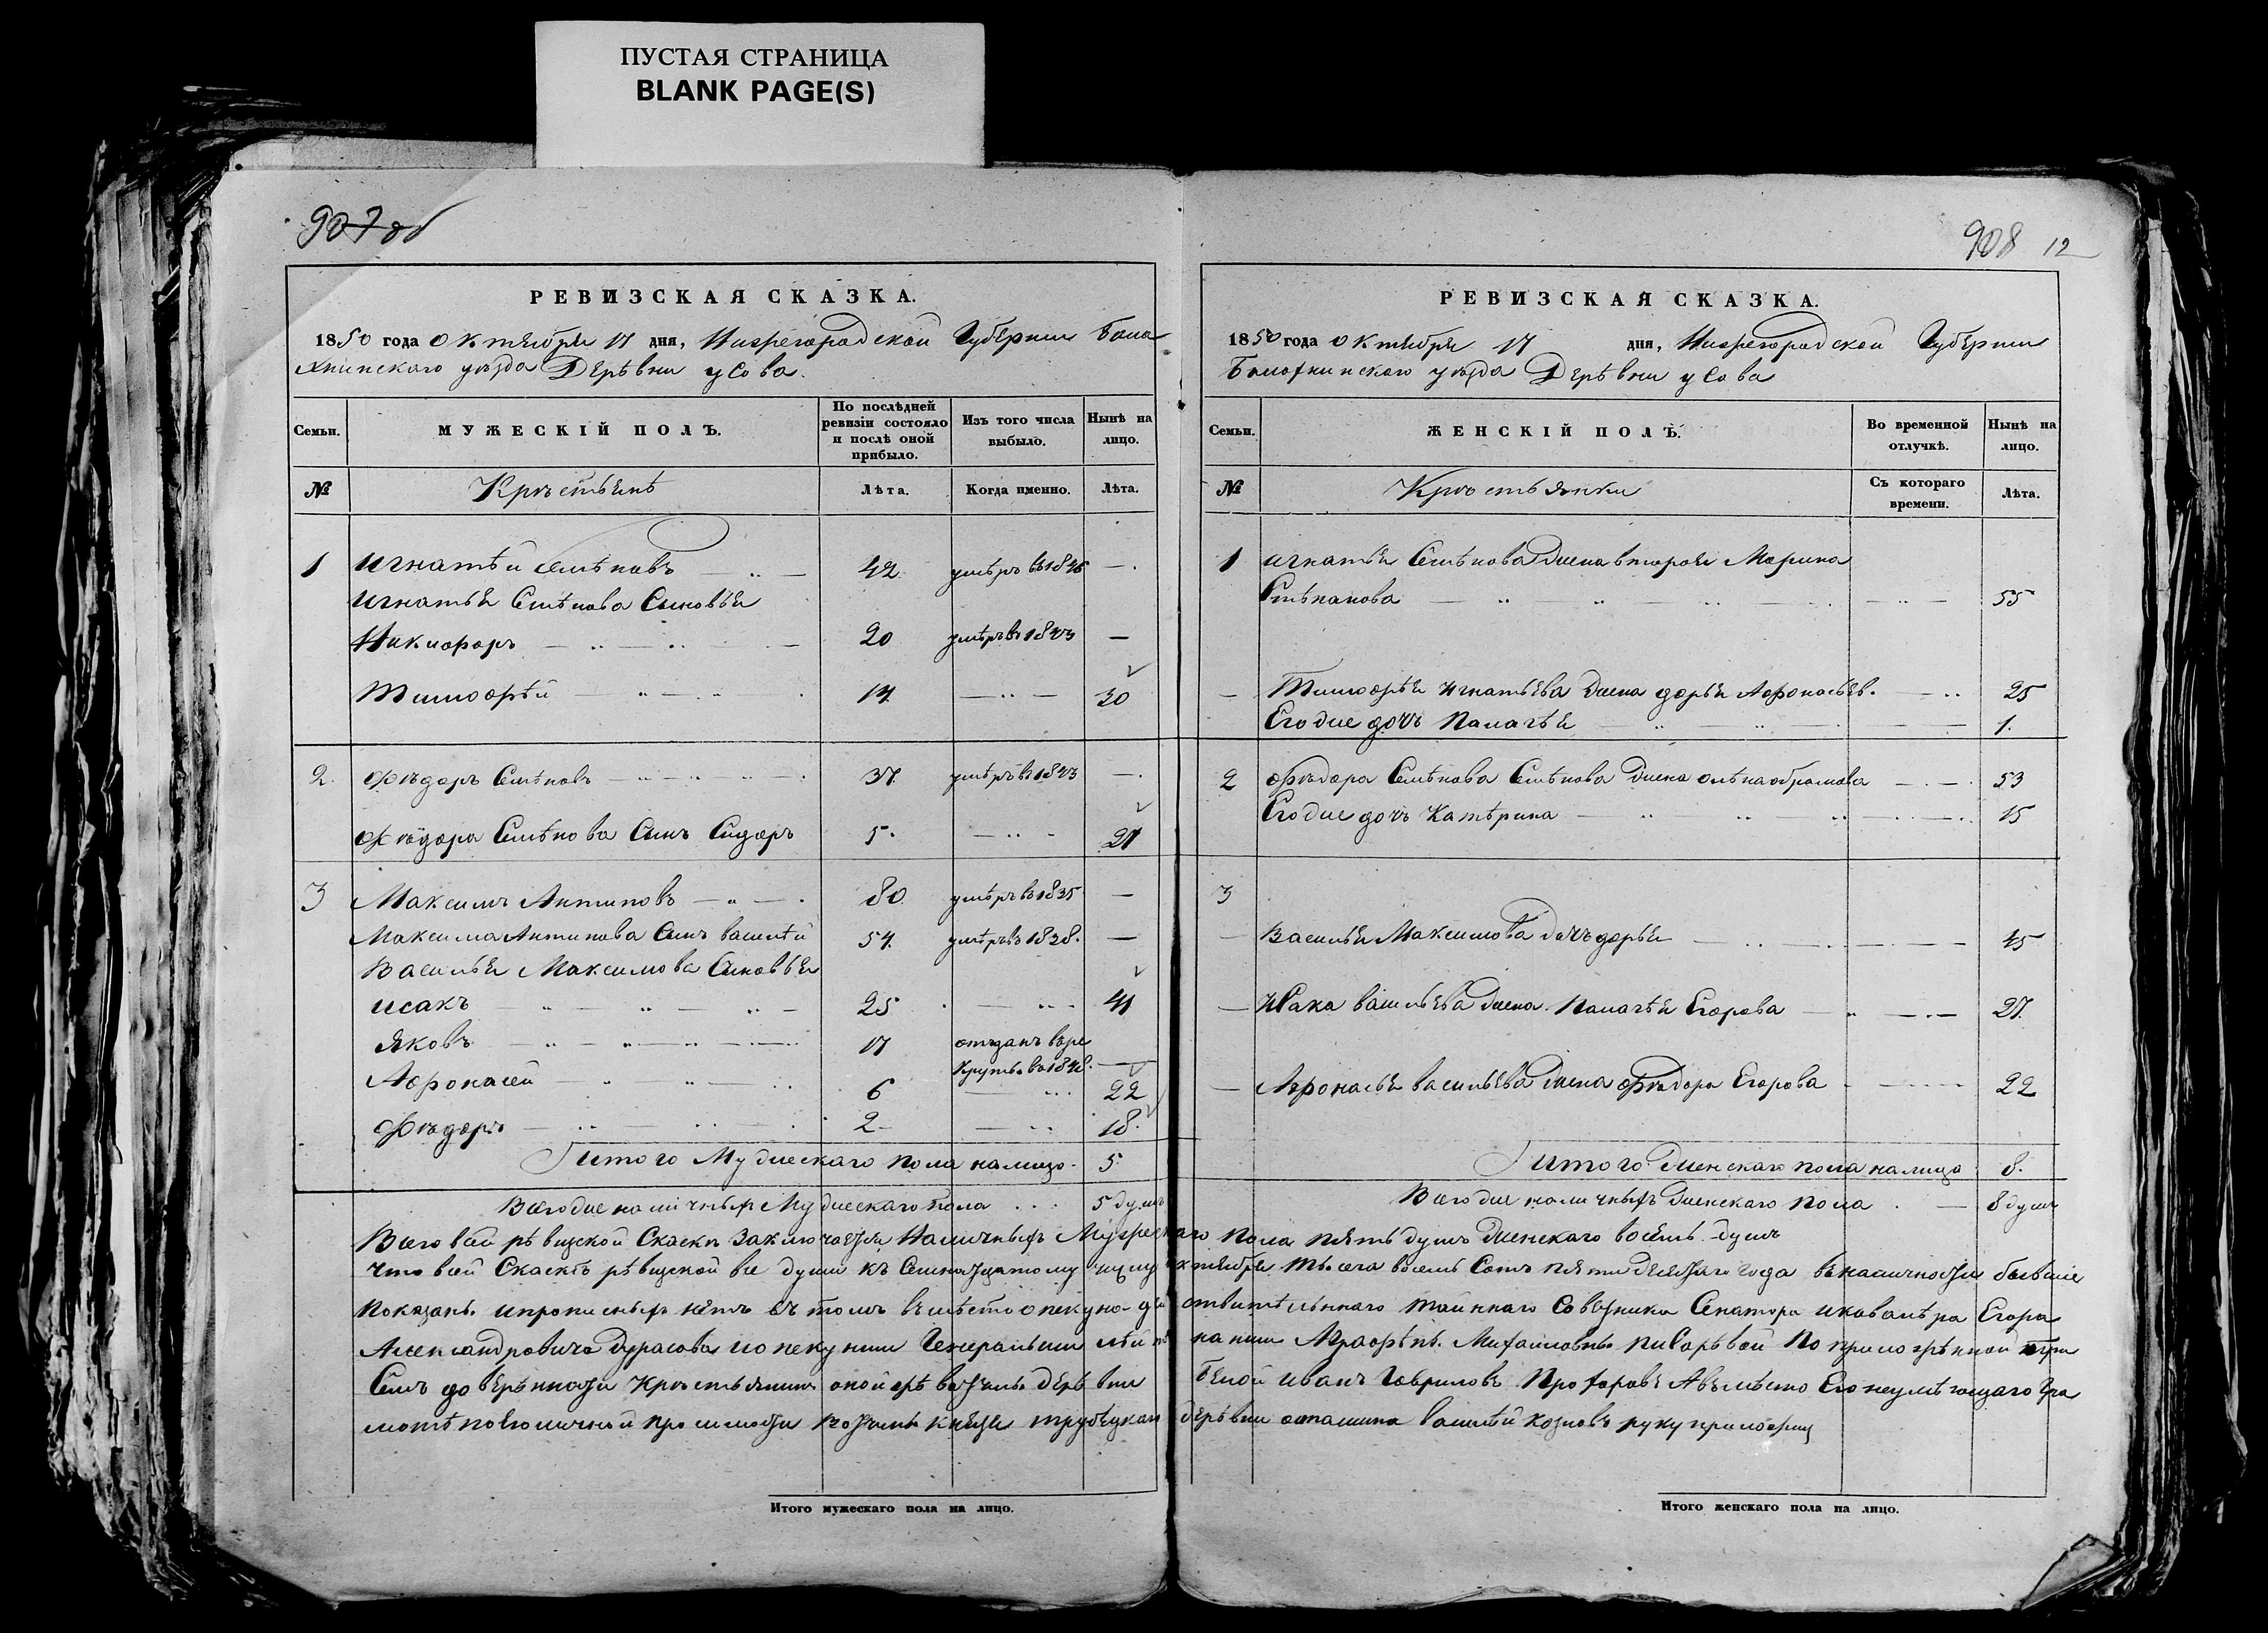 ПУСТАЯ СТРАНИЦА
BLANK PAGE(S)
907 об
РЕВИЗСКАЯ СКАЗКА.
1850 года октября 17 дня, Нижегородской Губернии Бала
хнинскаго уѣзда Дерѣвни усова.
Семьи.
МУЖЕСКІЙ ПОЛЪ.
По послѣдней ревизіи состояло и послѣ оной прибыло.
Изъ того числа выбыло.
Нынѣ на лицо.
№
Крѣстьенѣ
Лѣта.
Когда именно.
Лѣта.
1 Игнатѣй семѣновъ 42 умѣръ въ 1846 —
Игнатьи Семѣнова Сыновьи
Никифоръ 20 умѣръ въ 1843 —
Тимофѣй 14 — 30
2 Фѣдоръ Семѣновъ 37 умѣръ в 1843 —
Фѣдора Семѣнова Сынъ Сидоръ 5 — 21
3 Максимъ Антиповъ 80 умѣръ въ 1835 —
Максима Антипова Сынъ василѣй 54 умѣръ въ 1838. —
Васильи Максимова Сыновьи
исакъ 25 — 41
яковъ 17 отъданъ въре
круты въ 1848. —
Афонасей 6 — 22
Фѣдоръ 2 — 18.
итого Мужескаго пола налицо 5
Всегоже наличныхъ Мужескаго пола 5 душъ
908 12
РЕВИЗСКАЯ СКАЗКА.
1850 года октября 17 дня, Нижегородской Губернии
Балахнинскаго уѣзда Дерѣвни усова
Семьи.
ЖЕНСКІЙ ПОЛЪ.
Во временной отлучкѣ.
Нынѣ на лицо.
№
Крѣстьянки
Съ котораго времени.
Лѣта.
1 игнатьи Семѣнова жена вторая Марина
Стѣпанова 55
— Тимофѣи игнатьева жена дарьи Афонасьев. 25
Егоже дочь Палагѣи 1.
2 Фѣдора Семѣнова Семѣнова жена олѣна абрамова 53
Егоже дочь Катѣрина 15
3
— Васильи Максимова дочь дарьи 45
— исака васильева жена Палагѣи Егорова 27.
— Афонасьи васильева жена Фѣдора Егорова 22
итого женскаго пола налицо 8.
Всегоже наличныхъ женскаго пола 8 душъ
Всего всей рѣвизской Скаски Заключается Наличныхъ Мужескаго пола пять душъ женскаго восемь душъ
что всей Скаскѣ рѣвизской все души къ Семнадцатому числу октября тысеча восемь Сотъ пятидесятаго года въналичности бывшие
показаны ипрописныхъ нѣтъ въ томъ вмѣсто опекуна дѣйствитѣльннаго тайннаго Совѣтника Сенатора икавалѣра Егора
Александровича дурасова иопекунши Генеральши лѣйтѣнанши Аграфѣнѣ Михайловны писарѣвой По приложѣнной при
Семъ довѣрѣнности Крѣстьянинъ оной жѣ вотчины дѣрѣвни бѣлой иванъ Гавриловъ Прохоровъ Авъмѣсто Егонеумѣющаго гра
мотѣ поеголичной прозьбѣ вотчины князя трубѣцкаго дерѣвни осташина василѣй козловъ руку приложилъ
Итого мужескаго пола на лицо.
Итого женскаго пола на лицо.